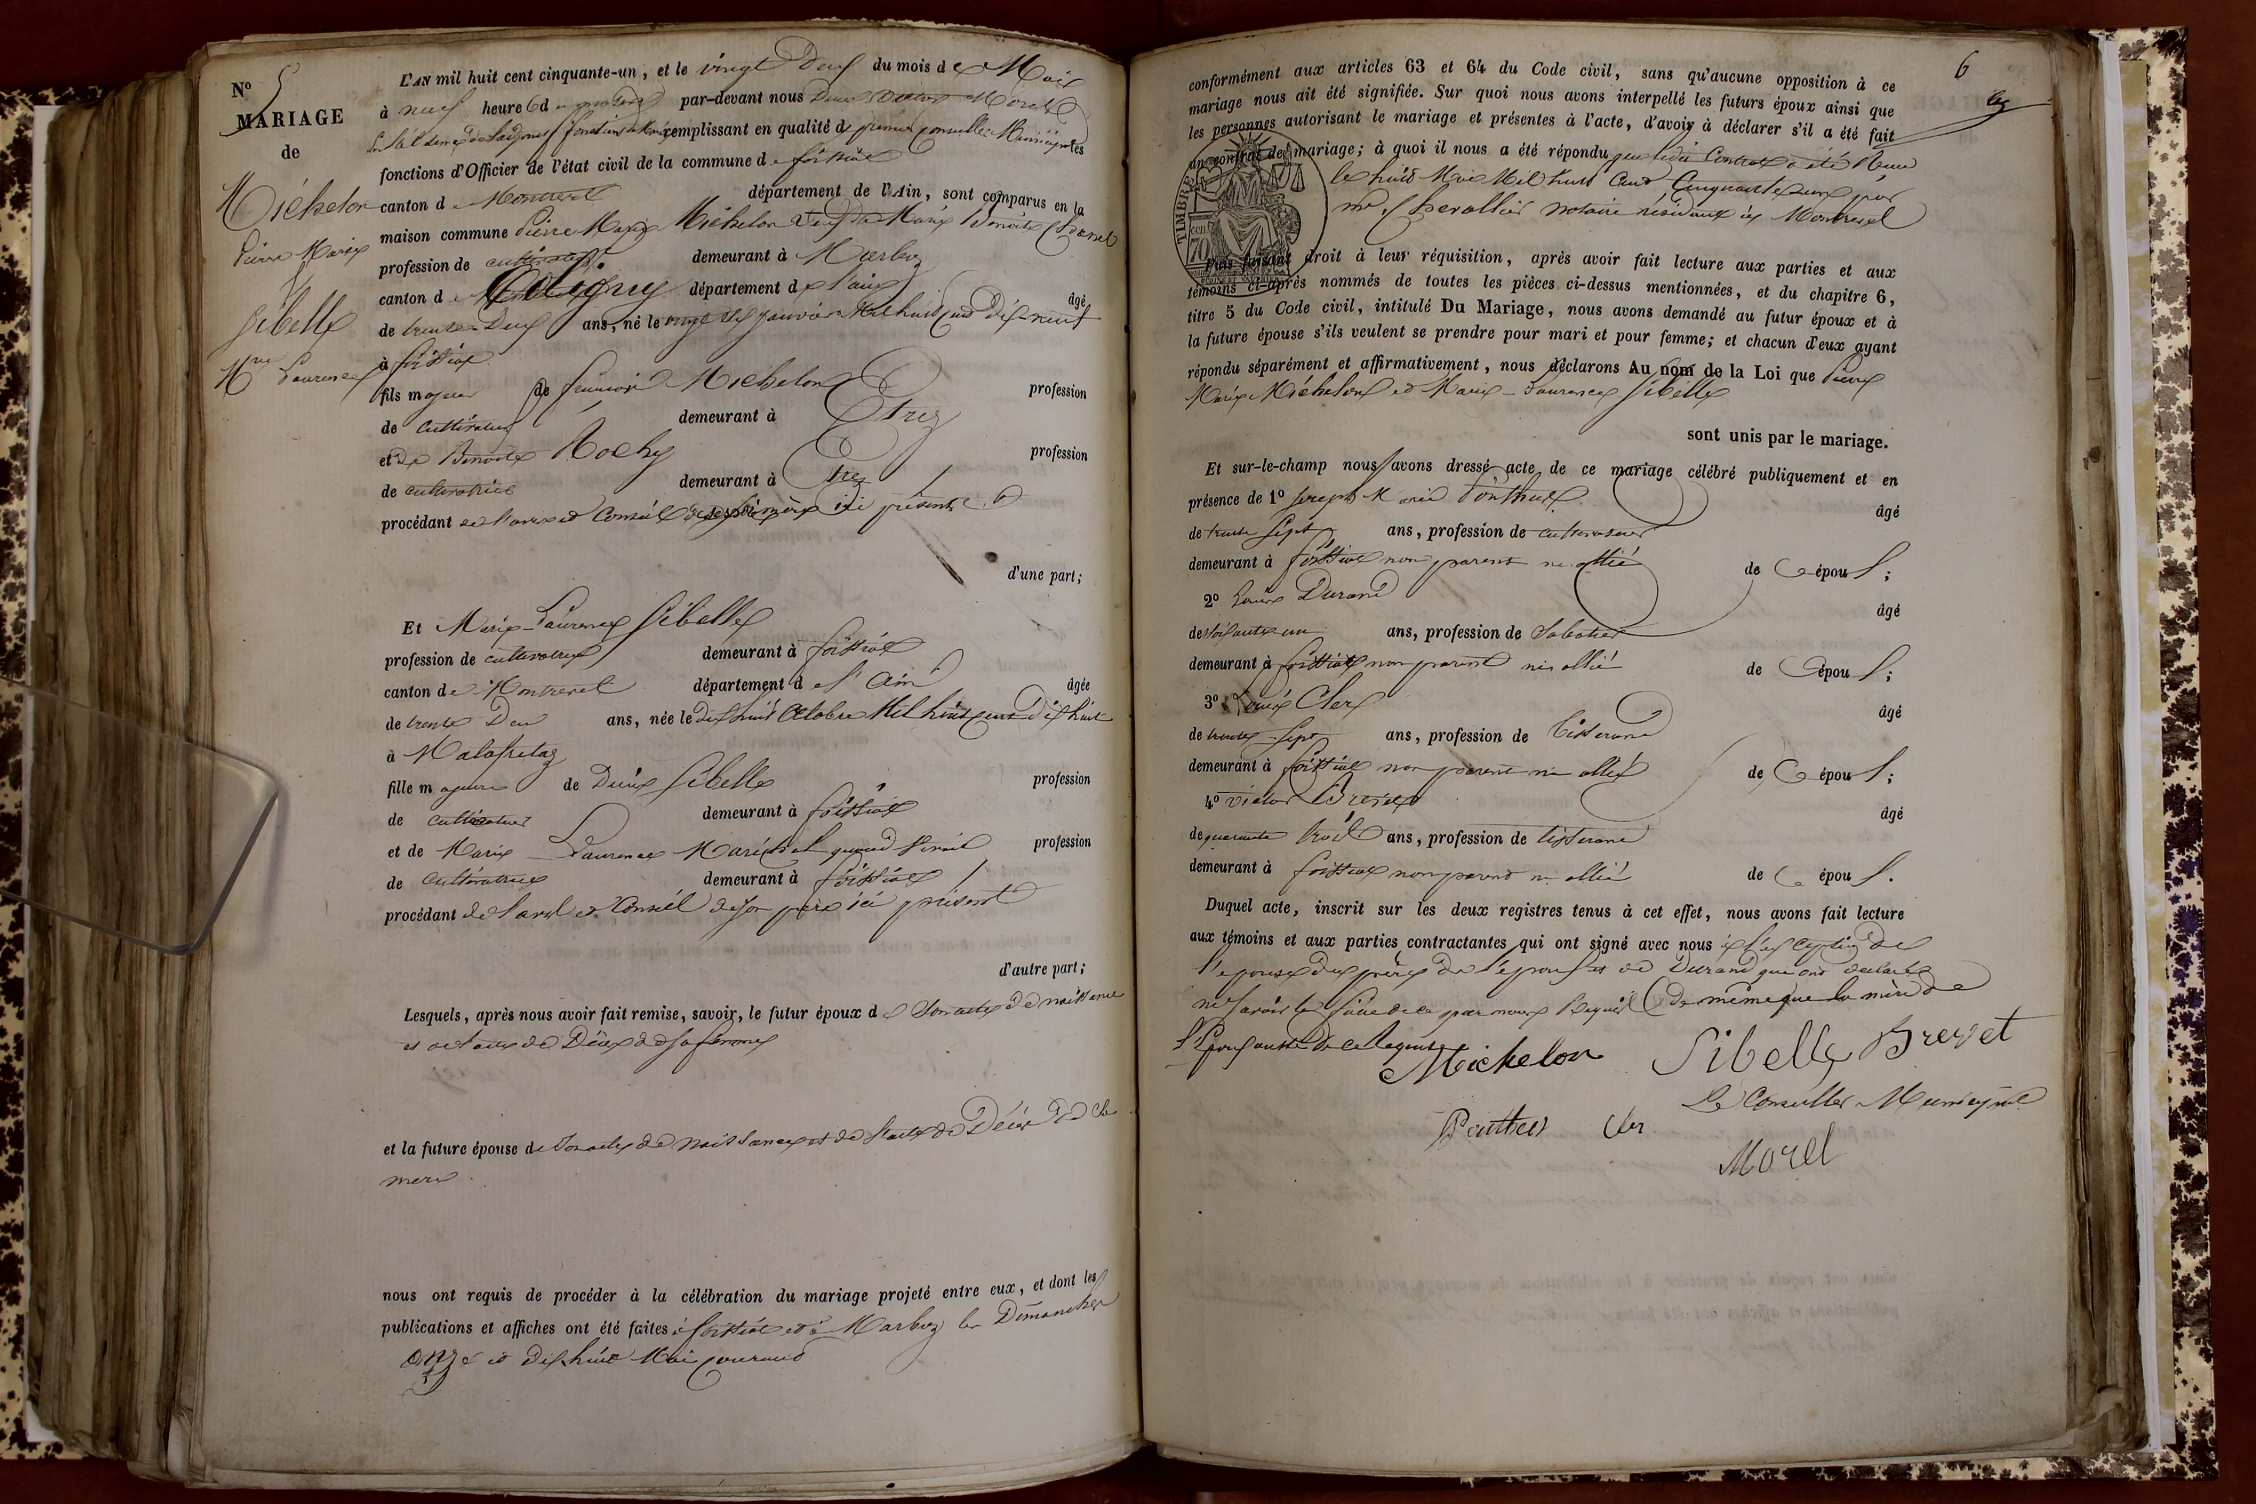 N° 5
MARIAGE
de
Michelon
Pierre Marie
&
Sibelle
Mie Laurence
L'AN mil huit cent cinquante-un, et le vingt Deux du mois de Mai
à neuf heures du par-devant nous Morel
remplissant en qualité de premier conseiller Municipal les
fonctions d'Officier de l'état civil de la commune de foissiat
canton de Montrevel département de l'Ain, sont comparus en la
maison commune Pierre Marie Michelon Veuf de Marie Benoite
profession de cultivateur demeurant à Marboz
canton de Coligny département de l'ain âgé
de trente Deux ans, né le vingt six janvier Mil huit cent dix neuf
à foissiat
fils majeur de Michelon profession
de cultivateur demeurant à Etrez
et de Benoite Rochy profession
de cultivatrice demeurant à Etrez
procédant de l'avis et Conseil de ses père & mère ici présents
d'une part;
Et Marie Laurence Sibelle
profession de cultivatrice demeurant à foissiat
canton de Montrevel département de l'Ain âgée
de trente Deux ans, née le dix huit Octobre Mil huit cent dix huit
à Malafretaz
fille majeure de Denis Sibelle profession
de cultivateur demeurant à foissiat
et de Marie Laurence Maréchal quand vivait profession
de cultivatrice demeurant à foissiat
procédant de l'avis et Conseil de son père ici présent
d'autre part;
Lesquels, après nous avoir fait remise, savoir, le futur époux de son acte de naissance
et de l'acte de Décès de sa femme
et la future épouse de son acte de naissance et de l'acte de Décès de sa
mère
nous ont requis de procéder à la célébration du mariage projeté entre eux, et dont les
publications et affiches ont été faites à foissiat et à Marboz les Dimanches
onze et dix huit Mai courant
6
conformément aux articles 63 et 64 du Code civil, sans qu'aucune opposition à ce
mariage nous ait été signifiée. Sur quoi nous avons interpellé les futurs époux ainsi que
les personnes autorisant le mariage et présentes à l'acte, d'avoir à déclarer s'il a été fait
un contrat de mariage; à quoi il nous a été répondu que ledit Contrat a été Reçu
le huit Mai Mil huit Cent Cinquante un par
me Chevallier notaire résidant à Montrevel
TIMBRE
70
Puis faisant droit à leur réquisition, après avoir fait lecture aux parties et aux
témoins ci-après nommés de toutes les pièces ci-dessus mentionnées, et du chapitre 6,
titre 5 du Code civil, intitulé Du Mariage, nous avons demandé au futur époux et à
la future épouse s'ils veulent se prendre pour mari et pour femme; et chacun d'eux ayant
répondu séparément et affirmativement, nous déclarons Au nom de la Loi que Pierre
Marie Michelon et Marie Laurence Sibelle
sont unis par le mariage.
Et sur-le-champ nous avons dressé acte de ce mariage célébré publiquement et en
présence de 1° Joseph Marie Ponthus âgé
de trente sept ans, profession de cultivateur
demeurant à foissiat non parent ni allié de époux;
2° Louis Durand âgé
de soixante un ans, profession de Sabotier
demeurant à foissiat non parent ni allié de époux;
3° Louis Clerc âgé
de trente sept ans, profession de tisserand
demeurant à foissiat non parent ni allié de époux;
4° victor Brevet âgé
de quarante trois ans, profession de tisserand
demeurant à foissiat non parent ni allié de époux.
Duquel acte, inscrit sur les deux registres tenus à cet effet, nous avons fait lecture
aux témoins et aux parties contractantes qui ont signé avec nous à l'exception de
l'épouse du père de l'époux et de Durand qui ont déclaré
ne savoir le faire de ce par nous Requis de même que la mère de
l'époux aussi de ce Requise
Michelon Sibelle Brevet
Le Conseiller Municipal
Ponthus Clerc
Morel